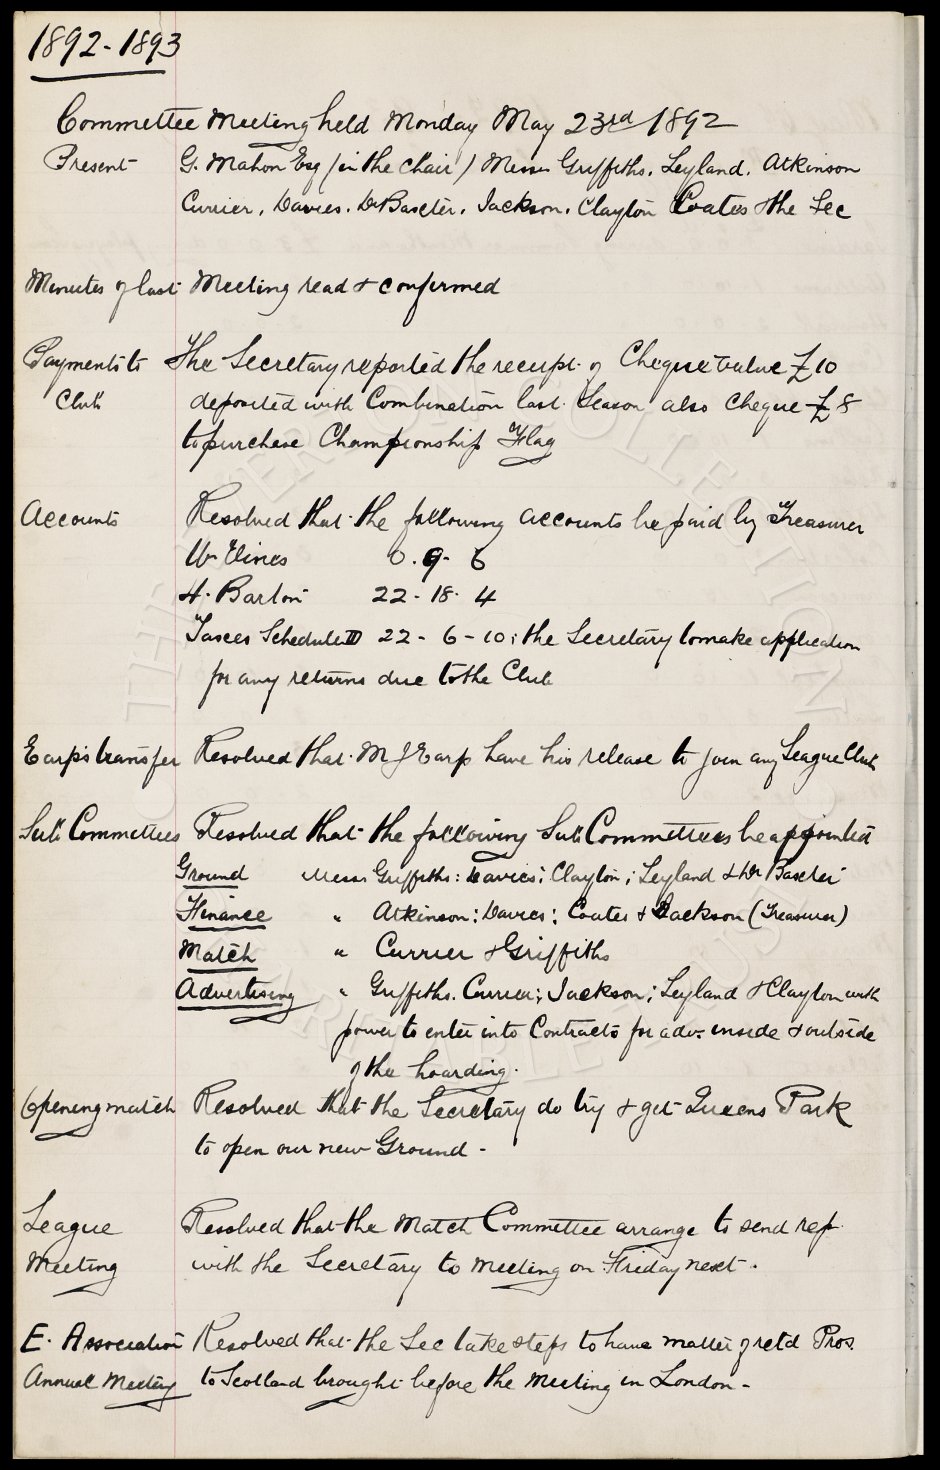 1892-1893
Committee Meeting held Monday May 23rd 1892
Present G. Mahon Esq (in the chair) Messrs Griffiths. Leyland. Atkinson
Currier. Davies. Dr Baxter. Jackson. Clayton Coates & the Sec
Minutes of last Meeting read & confirmed
Payments to The Secretary reported the receipt of Cheque value £10
Club deposited with Combination last Season also cheque £8
to purchase Championship Flag
Accounts Resolved that the following accounts be paid by Treasurer
Wm Vines 0.9-6
H. Barton 22-18-4
Taxes Schedule D 22-6-10; the Secretary to make application
for any returns due to the Club
Earps transfer Resolved that M J Earp have his release to join any League Club
Sub Committees Resolved that the following Sub Committees be appointed
Ground Messrs Griffiths: Davies; Clayton; Leyland & Dr Baxter
Finance " Atkinson; Davies; Coates & Jackson (Treasurer)
Match " Currier & Griffiths
Advertising " Griffiths. Currier; Jackson; Leyland & Clayton with
power to enter into Contracts for adv. inside & outside
of the hoarding.
Opening match Resolved that the Secretary do try & get Queens Park
to open our new Ground -
League Resolved that the Match Committee arrange to send rep.
Meeting with the Secretary to meeting on Friday next.
E. Association Resolved that the Sec take steps to have matter of retd Pros.
Annual Meeting to Scotland brought before the Meeting in London -